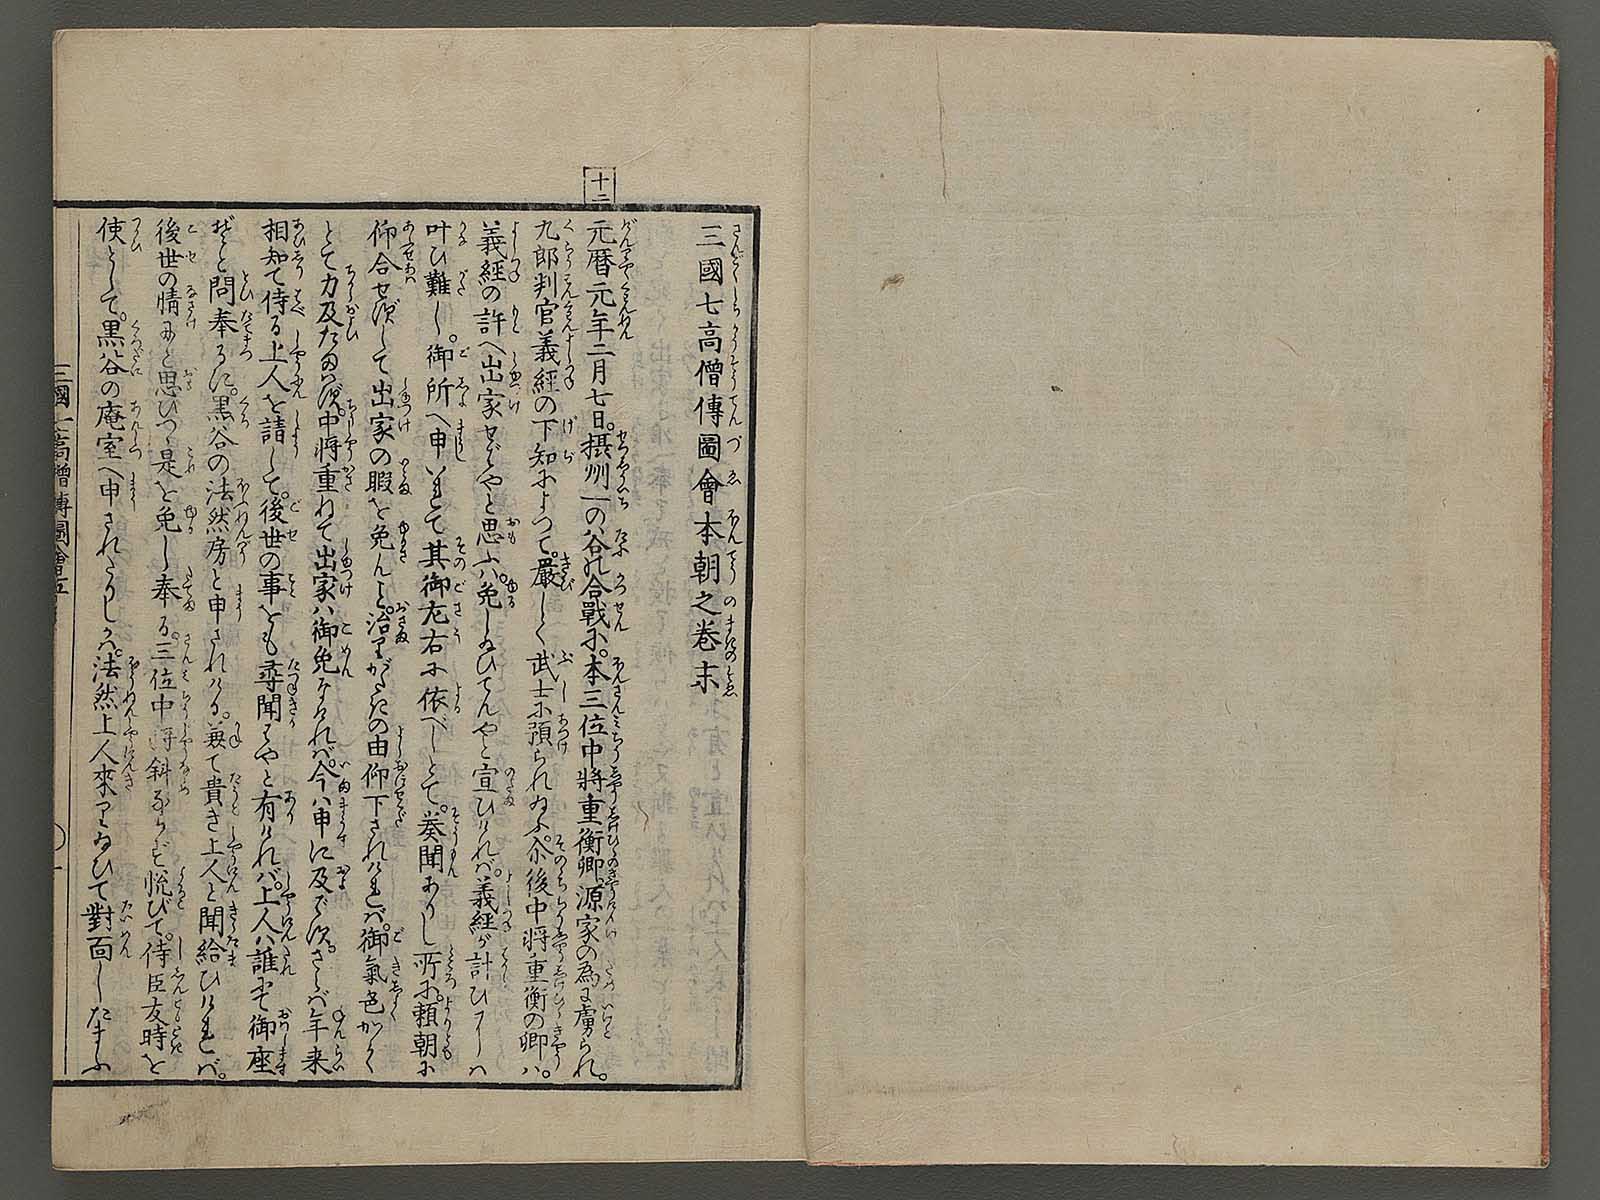 十二
三國七高僧傳圖會本朝之卷末
元暦元年二月七日。摂州一の谷の合戰に。本三位中將重衡卿。源家の為に虜られ。
九郎判官義經の下知によつて。嚴しく武士に預られ給ふ。其後中將重衡の卿ハ。
義經の許へ出家せばやと思ふハ。免し給ひてんやと宣ひけれバ。義經が計ひにハ
叶ひ難し。御所へ申いれて其御左右に依べしとて。奏聞ありし所に。頼朝に
仰合せずして出家の暇を免んこと。治りがたきの由仰下されけれバ。御氣色かく
とて力及たまハず。中將重ねて出家ハ御免なけれバ。今ハ申に及でず。さらバ年来
相知て侍る上人を請して。後世の事をも尋聞ばやと有けれバ。上人ハ誰にて御座
ぞと問奉るに。黒谷の法然房と申されける。兼て貴き上人と聞給ひけれバ。
後世の情にと思ひつゝ是を免し奉る。三位中將斜ならず悦びて。侍臣友時を
使として。黒谷の庵室へ申されたりしかバ。法然上人來り給ひて對面したまふ
三國七高僧傳圖會五